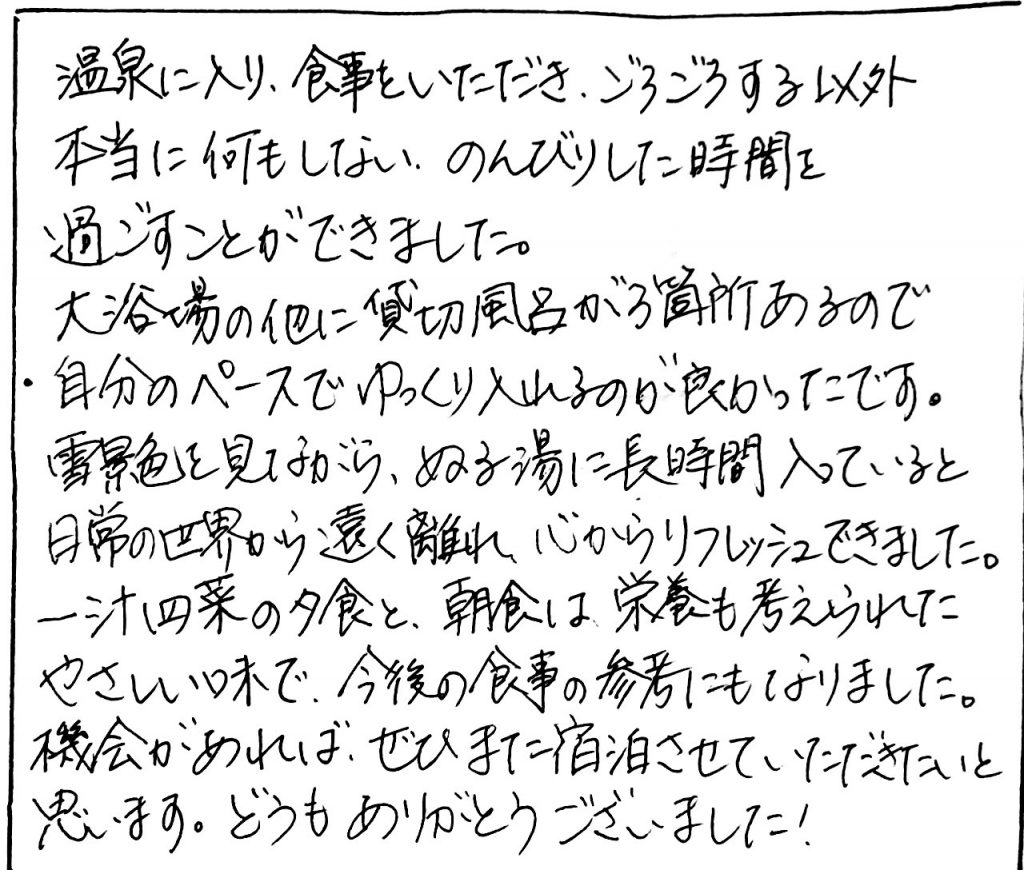 温泉に入り、食事をいただき、ごろごろする以外
本当に何もしない、のんびりした時間を
過ごすことができました。
大浴場の他に貸切風呂が3箇所あるので
自分のペースでゆっくり入れるのが良かったです。
雪景色を見ながら、ぬる湯に長時間入っていると
日常の世界から遠く離れ、心からリフレッシュできました。
一汁四菜の夕食と、朝食は、栄養も考えられた
やさしい味で、今後の食事の参考にもなりました。
機会があれば、ぜひまた宿泊させていただきたいと
思います。どうもありがとうございました!